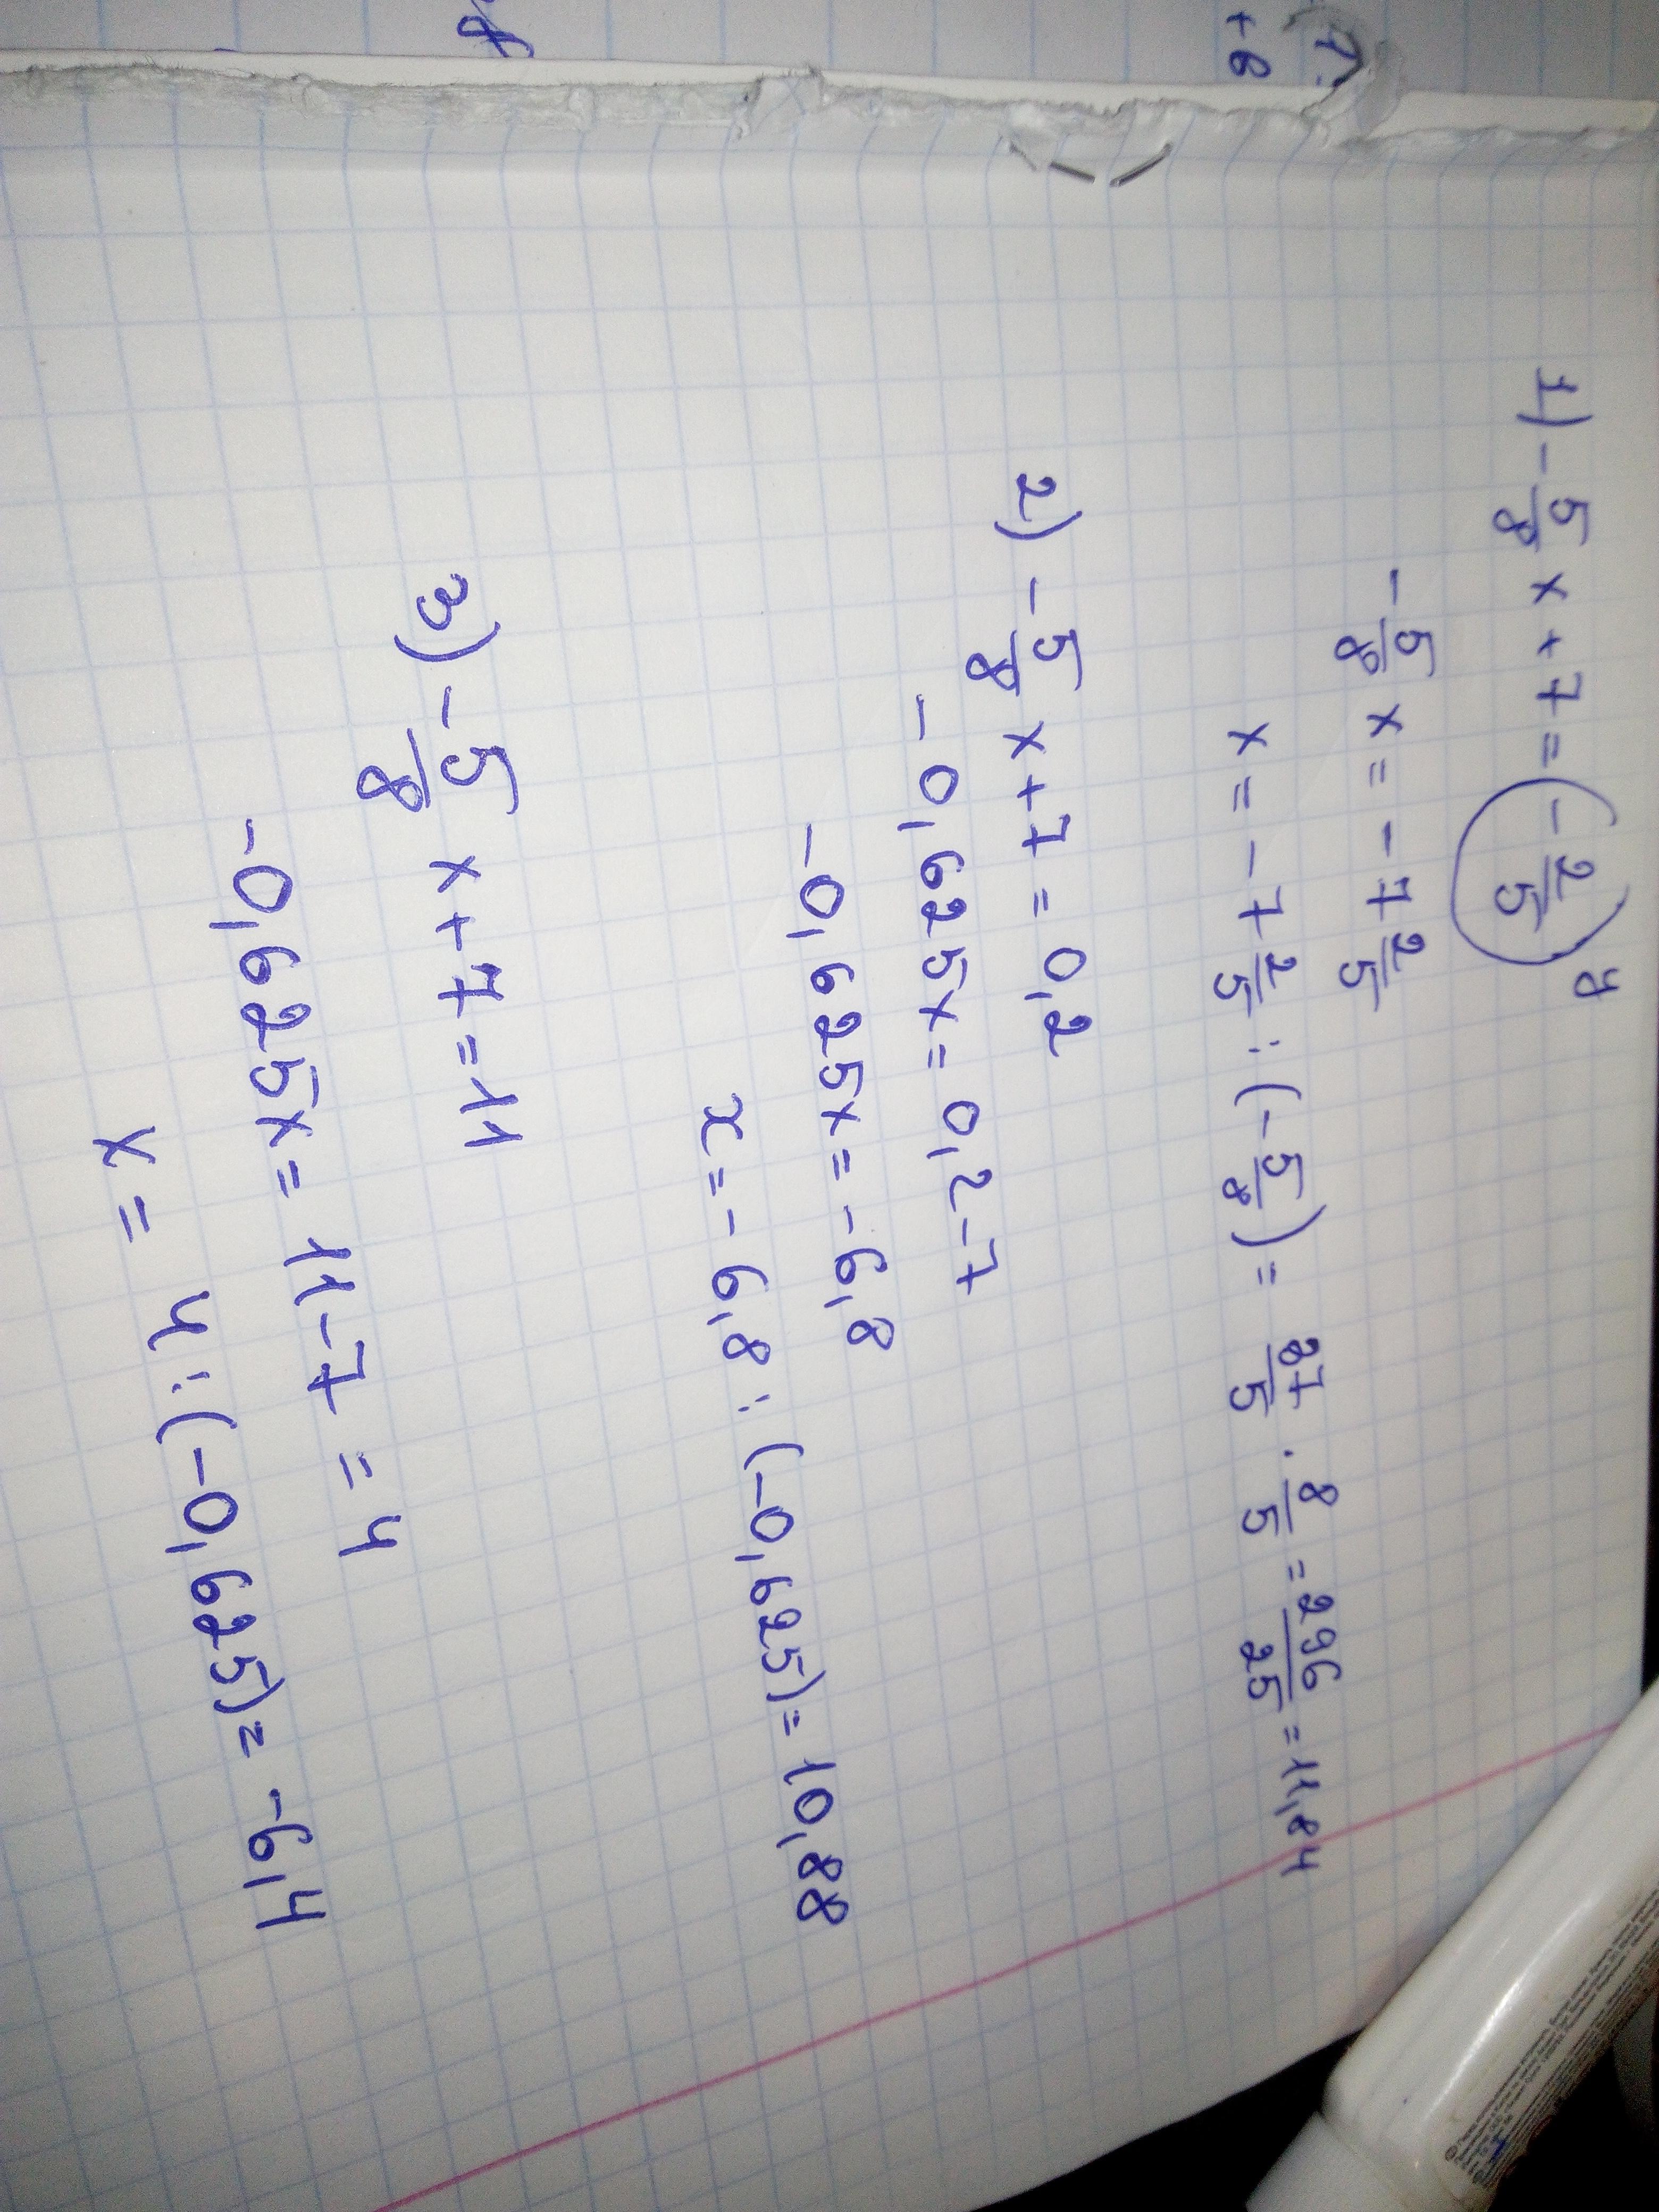 1) -5/8 x + 7 = (-2/5) y
-5/8 x = -7 2/5
x = -7 2/5 : (-5/8) = 37/5 · 8/5 = 296/25 = 11,84
2) -5/8 x + 7 = 0,2
-0,625x = 0,2-7
-0,625x = -6,8
x = -6,8 : (-0,625) = 10,88
3) -5/8 x + 7 = 11
-0,625x = 11-7 = 4
x = 4 : (-0,625) = -6,4